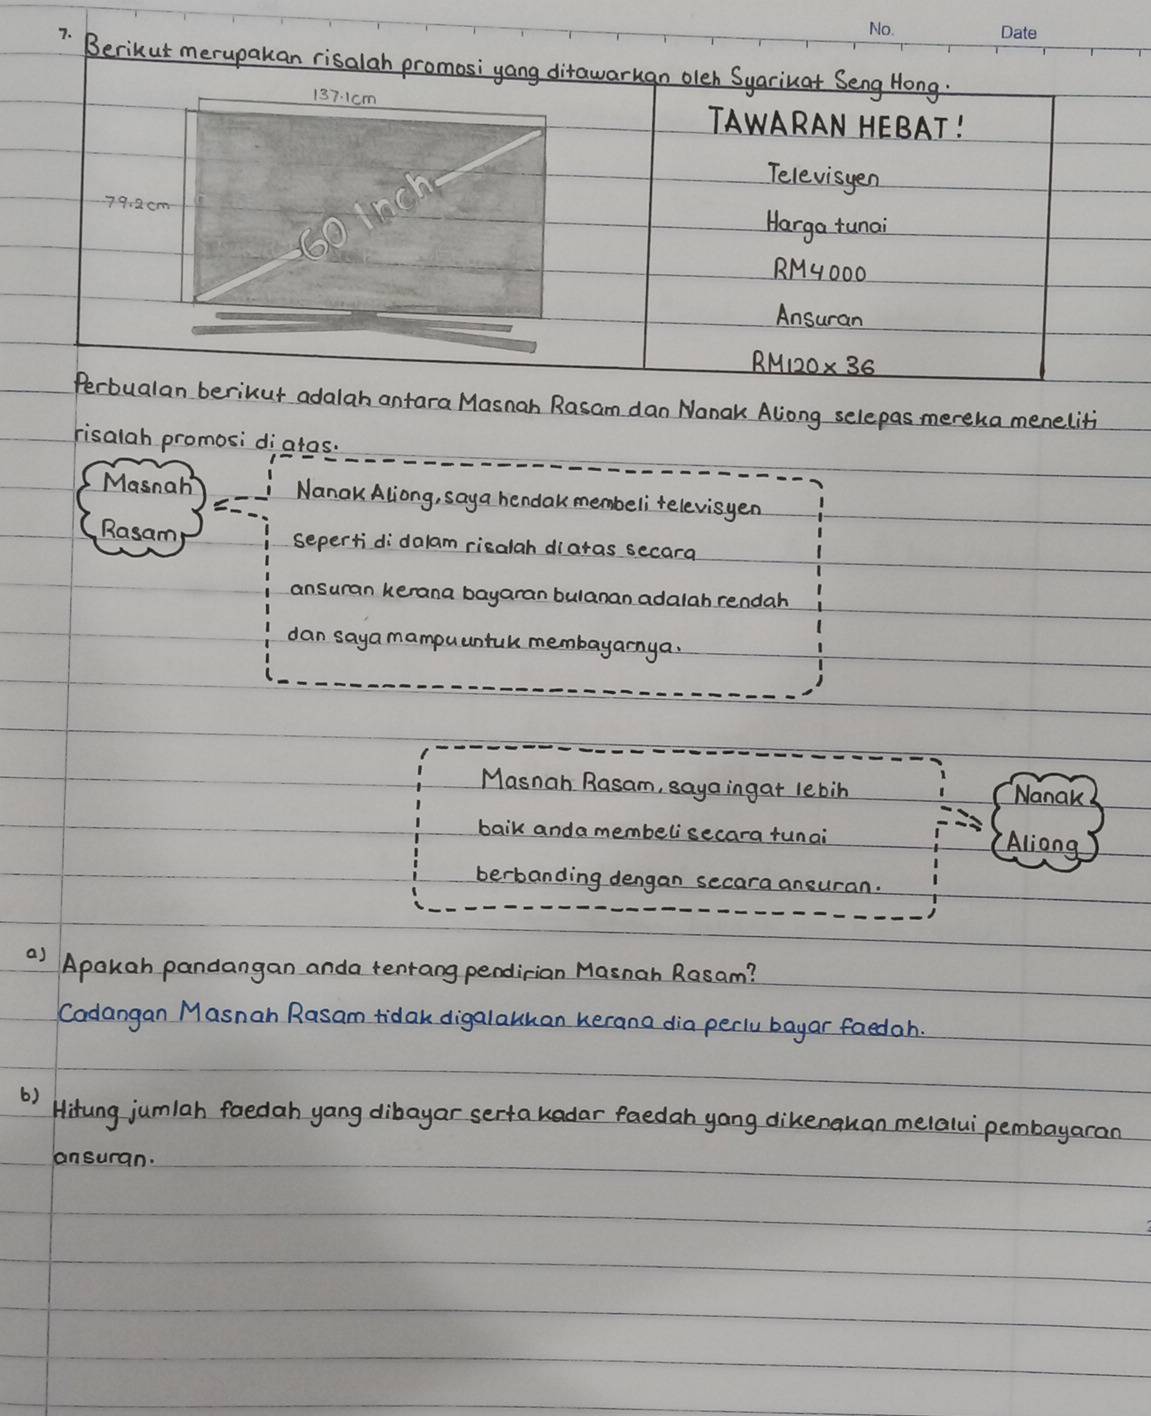 No.
Date
7. Berikut merupakan risalah promosi yang ditawarkan oleh Syarikat Seng Hong.
137.1cm
79.2cm
60 Inch
TAWARAN HEBAT!
Televisyen
Harga tunai
RM4000
Ansuran
RM120 x 36
Perbualan berikut adalah antara Masnah Rasam dan Nanak Aliong selepas mereka meneliti
risalah promosi di atas.
Masnah
Rasam
Nanak Aliong, saya hendak membeli televisyen
seperti di dalam risalah diatas secara
ansuran kerana bayaran bulanan adalah rendah
dan saya mampu untuk membayarnya.
Masnah Rasam, saya ingat lebih
baik anda membeli secara tunai
berbanding dengan secara ansuran.
Nanak
Aliong
a) Apakah pandangan anda tentang pendirian Masnah Rasam?
Cadangan Masnah Rasam tidak digalakkan kerana dia perlu bayar faedah.
b) Hitung jumlah faedah yang dibayar serta kadar faedah yang dikenakan melalui pembayaran
ansuran.